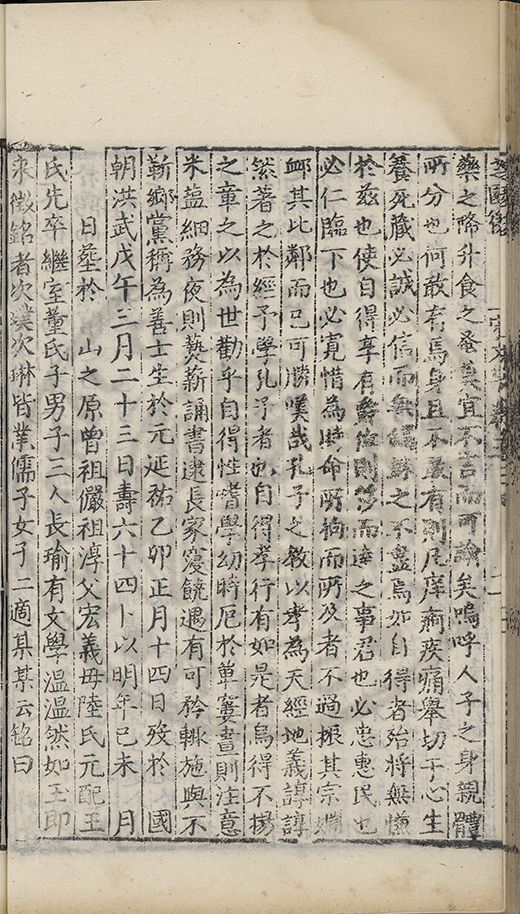 藥之降升食之蚤莫宜不言而可諭矣嗚呼人子之身親體
所分也何敢有焉身且不敢有則凡痒痾疾痛舉切于心生
養死藏必誠必信而無纖觧之不盡焉如自得者殆將無慊
於兹也使自得享有爵位則莎而達之事君也必忠惠民也
必仁臨下也必寬惜為時命所拘而所及者不過振其宗婣
卹其比鄰而已可勝嘆哉孔子之教以孝為天經地義諄諄
然著之於經予學孔子者也自得孝行有如是者烏得不揚
之章之以為世勸乎自得性嗜學幼時厄於單窶晝則注意
米鹽細務夜則爇薪誦書逮長家寖饒遇有可矜輙施與不
靳鄉黨稱為善士生於元延祐乙卯正月十四日歿於 國
朝洪武戊午三月二十三日壽六十四卜以明年己未 月
日塟於 山之原曾祖儼祖淳父宏義母陸氏元配王
氏先卒繼室董氏子男子三人長瑜有文學溫溫然如玉即
來徵銘者次璞次琳皆業儒子女子二適某某云銘曰